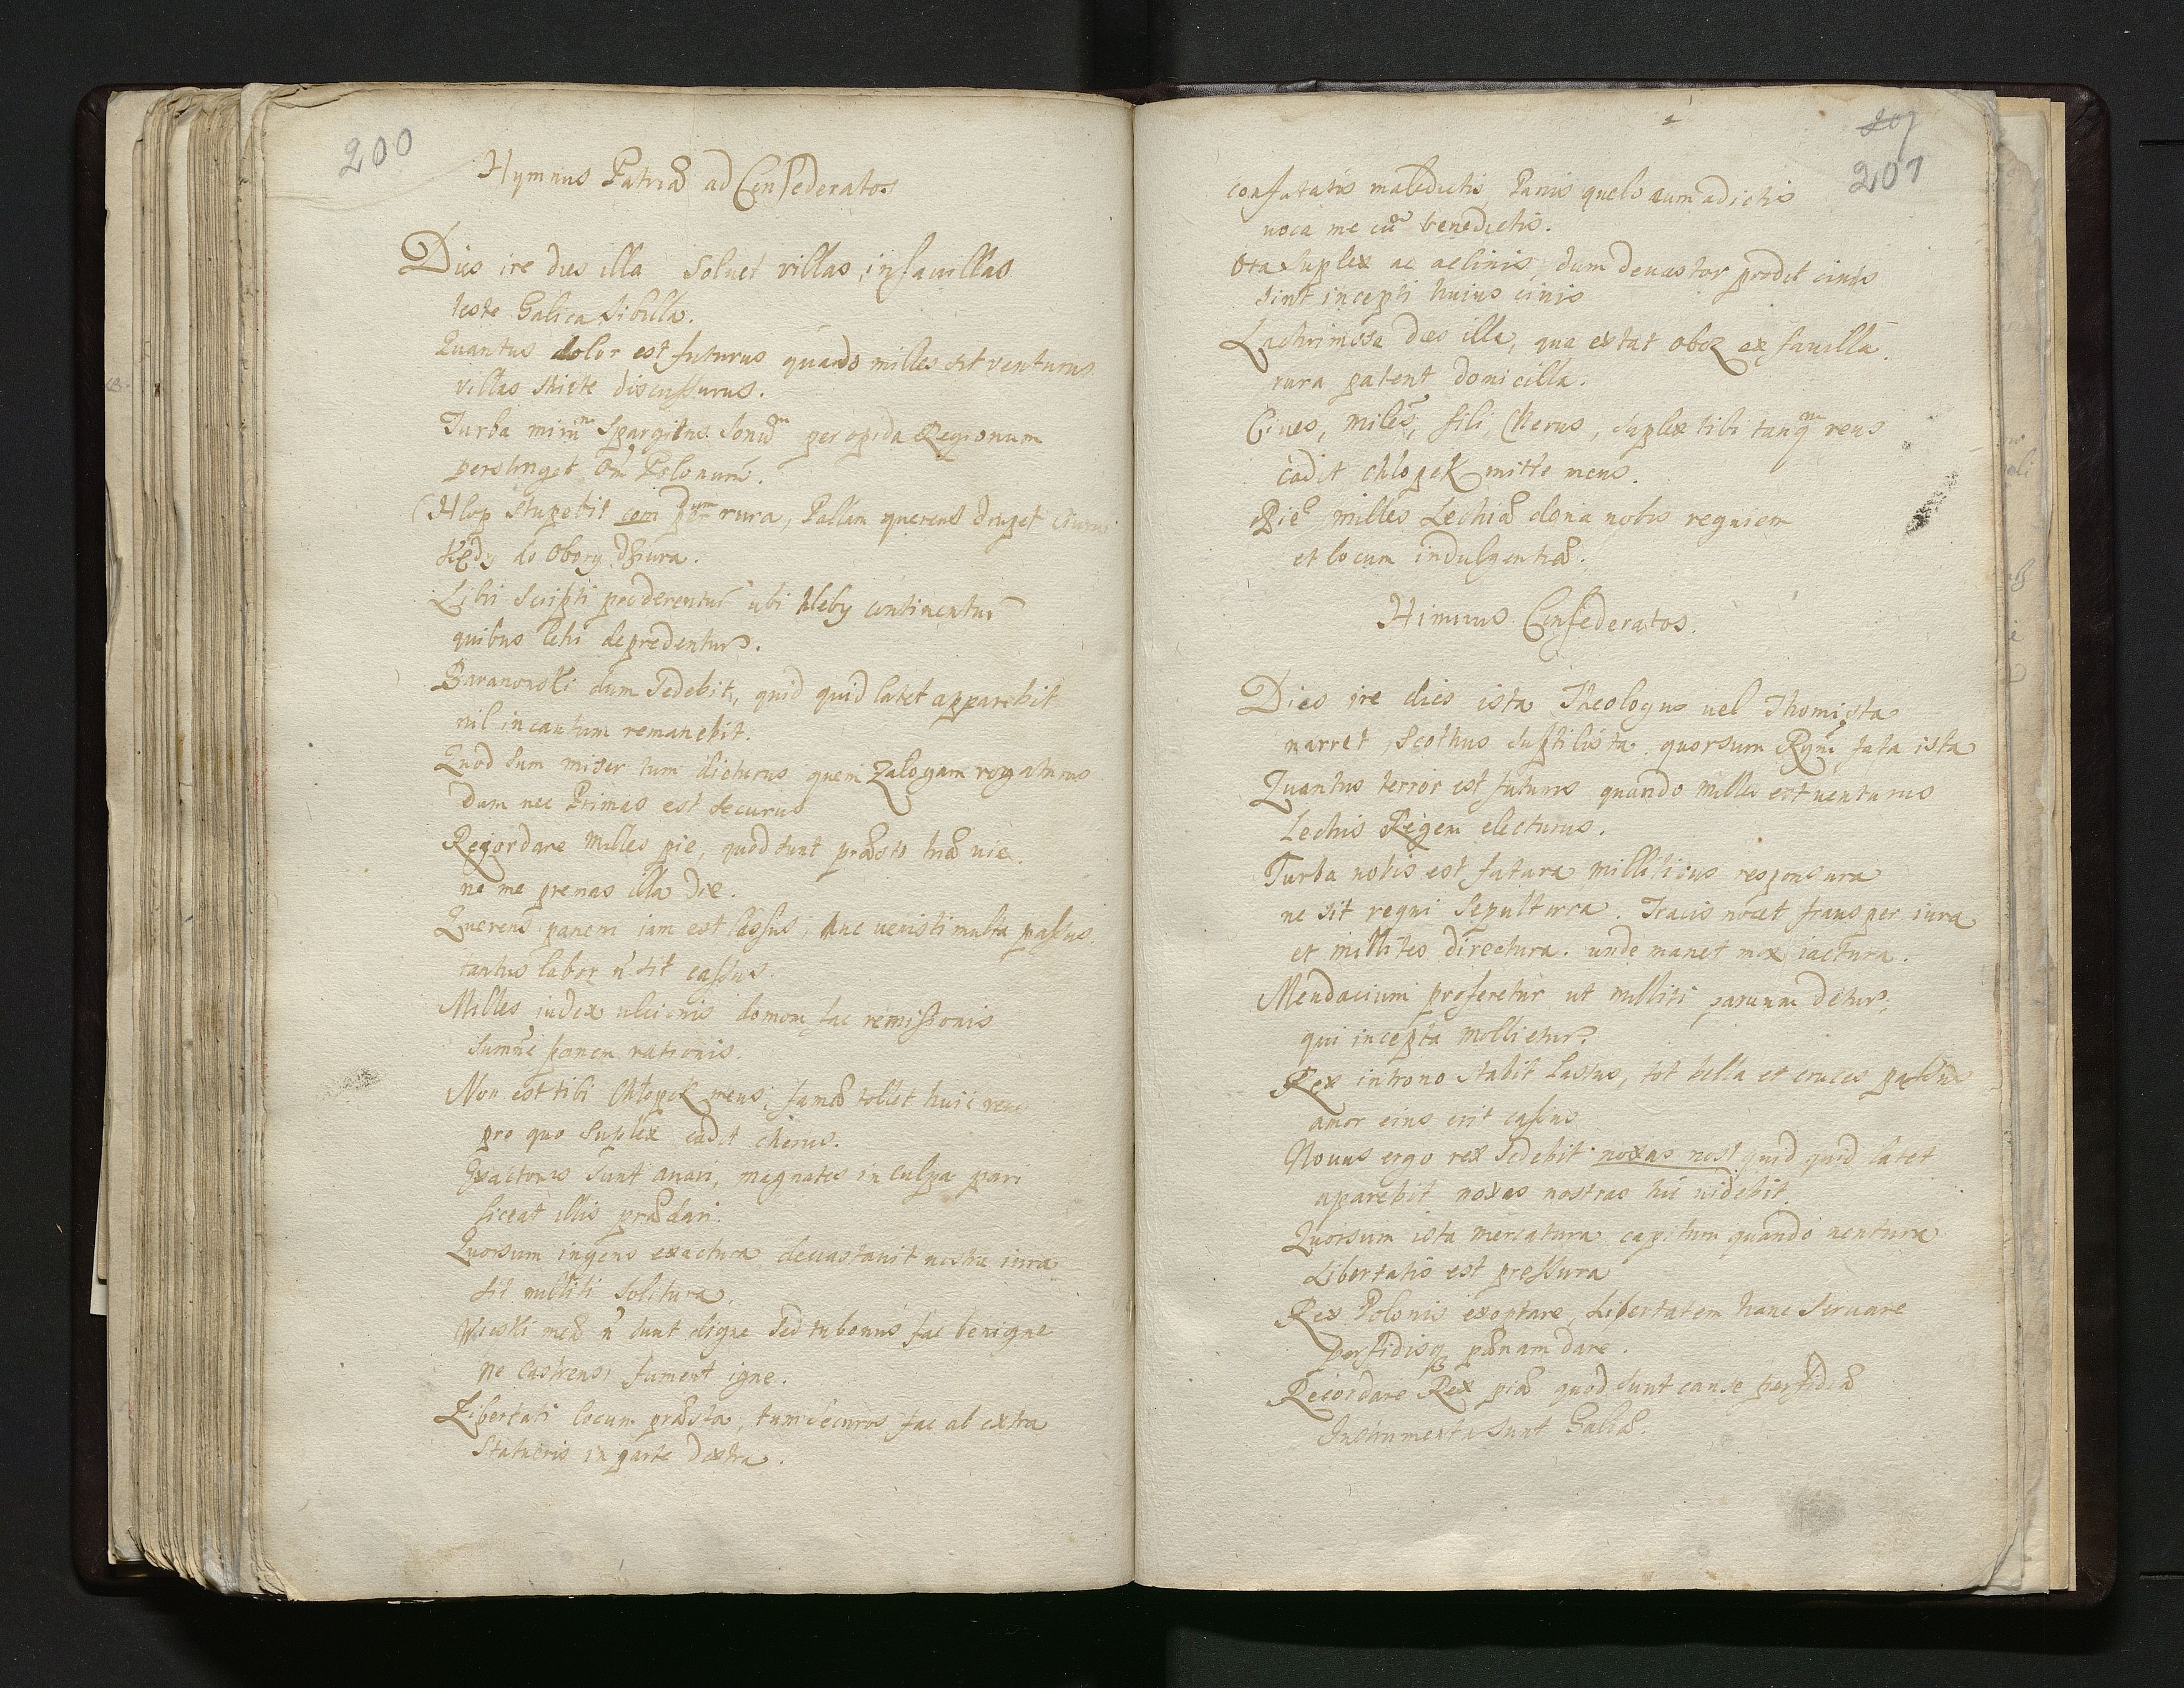 200
Hymnus Patriæ ad Confederatos
Dies ire dies illa Soluet villas in fauillas
teste Galica Sibilla.
Quantus dolor est futurus quando milles sit venturus
villas stricte discussurus.
Turba mirum Spargens Sonum per opida Regionum
perstringet Om Polonum.
Chlop Stupebit cum rura, Pallam querens druget
Kędy do Obory dziura.
Libri Scripti proderentur ubi Chleby continentur
quibus Lehi depredentur.
Baranowski dum Sedebit, quid quid latet apparebit
nil incautum remanebit.
Quod Sum miser tum dicturus quem Załogam rogaturus
dum nec Primas est Securus
Recordare Milles pie, quod sunt præsto triæ uiæ.
ne me premas illa die.
Querens panem iam est lassus, huc uenisti multa passus.
tantus labor n sit cassus.
Milles iudex ulcionis domom fac remissionis
Summe panem rationis.
Non est tibi Chłopek meus, famæ tollet huic reus
pro quo Suplex cadit cherus.
Exactores Sunt auari, magnates in culpa pari
liceat illis prædari.
Quorsum ingens exactura deuastauit nostra iura
sit milliti Solitura.
Wioski meæ n sunt digne Sed tu bonus fac benigne
ne Castrensi fument igne.
Libertati locum præsta, tum securos fac ab extra
Statueris in parte dextra.
207
207
confutatis maledictis, Panis quels cum adictis
uoca me cu benedictis.
Ora Suplex ac aclinis, dum deuastor prodit cinis
sint incepti huius cinis
Lachrimosa dies illa, qua extat oboz ex fauilla.
rura patent domicilla.
Ciues, miles, fili, Cherus, Suplex tibi tanqm reus
cadit chlopek mitte meus.
Pie milles Lechiæ dona nobis requiem
et locum indulgentiæ.
Himnus Confederatos.
Dies ire dies ista Theologus uel Thomista
narret, Scothus Suptilista. quorsum Rgni fata ista
Quantus terror est futurus quando milles est uenturus
Lechis Regem electurus.
Turba nobis est futura milliticus responsura
ne sit regni Sepulturæ. Tracis nocet fraus per iura
et millites directura. unde manet mox iactura.
Mendacium proferetur ut milliti parum detur,
qui incepta mollietur.
Rex in trono stabit Lassus, tot bella et cruces passus
amor eius erit cassus
Nouus ergo rex Sedebit noxas nost quid quid latet
aparebit noxas nostras hic uidebit.
Quorsum ista mercatura capitum quando uentura
Libertatis est pressura
Rex Polonis exoptare, Libertatem hanc Seruare
perfidisq pænam dare.
Recordare Rex piæ quod sunt cause perfidiæ
Instrumenta sunt Galiæ.